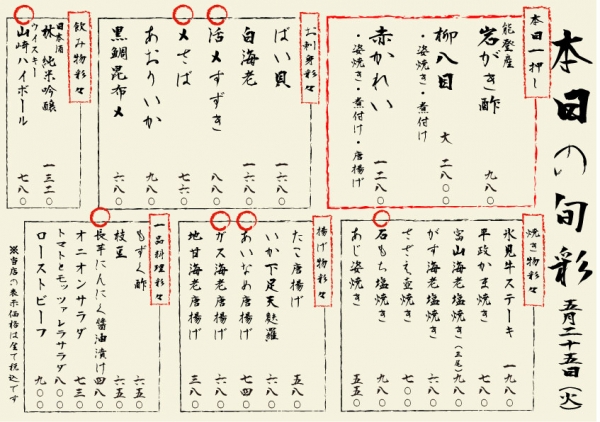 本日の旬彩 五月二十五日(火)
本日一押し
能登産
岩がき酢 九八〇
柳八目 大 二八〇〇
・姿焼き・煮付け
赤かれい 一二八〇
・姿焼き・煮付け・唐揚げ
お刺身彩々
ばい貝 一六八〇
白海老 一六八〇
活〆すずき 八八〇
〆さば 七六〇
あおりいか 九八〇
黒鯛昆布〆
飲み物彩々
日本酒
林 純米吟醸 一三二〇
ウイスキー
山崎ハイボール 七八〇
焼き物彩々
氷見牛ステーキ 一九八〇
平政かま焼き 七八〇
富山海老塩焼き(三尾) 九八〇
がす海老塩焼き 六八〇
さざえ壺焼き
石もち塩焼き 九〇〇
あじ姿焼き 五五〇
揚げ物彩々
たこ唐揚げ 五八〇
いか下足天麩羅
あいなめ唐揚げ 七四〇
ガス海老唐揚げ 六八〇
地甘海老唐揚げ 三八〇
一品料理彩々
もずく酢 六五〇
枝豆 六五〇
長芋にんにく醤油漬け 四八〇
オニオンサラダ 七三〇
トマトとモッツァレラサラダ 八〇〇
ローストビーフ 九〇〇
※当店の表示価格は全て税込です